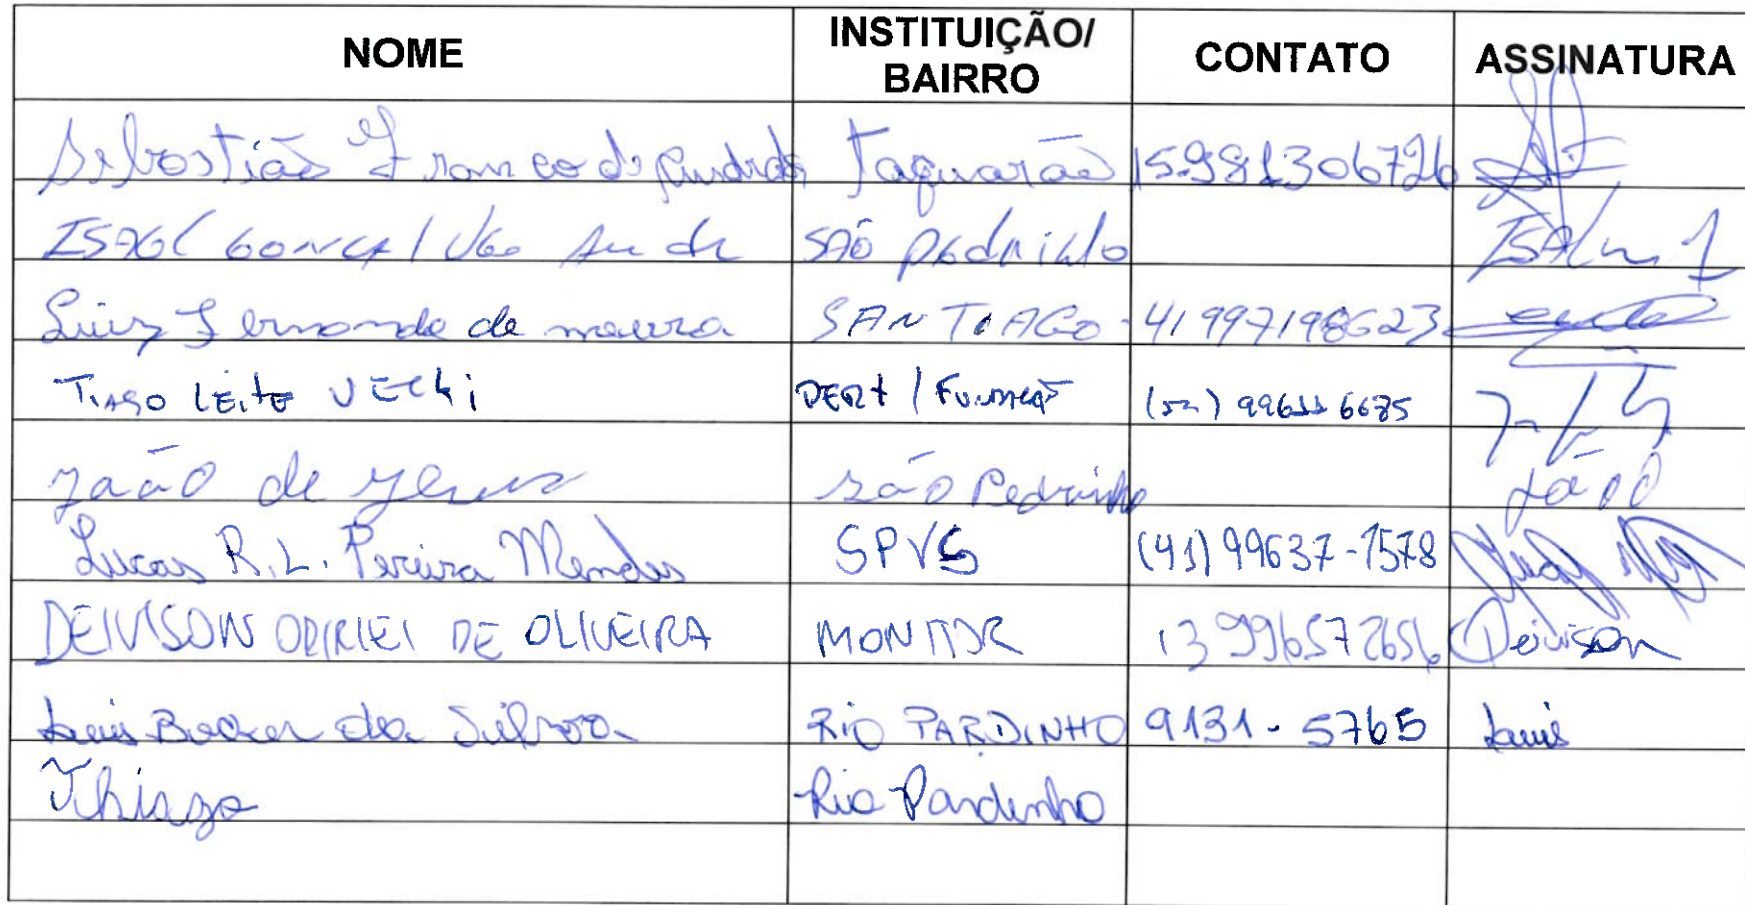 NOME INSTITUIÇÃO/ BAIRRO CONTATO ASSINATURA
Sebastião Franco de Andrade Taquarão 15.981306726
São Pedrinho
Luiz Fernando de moura SANTIAGO - 41997198623
TIAGO LEITE VECHI
João de Jesus São Pedrinho João
Lucas R.L. Pereira Mendes SPVS (41) 99637-1578
DEIVISON DE OLIVEIRA MONITOR 13 996572656 Deivison
Luis da Silva RIO PARDINHO 9131-5765 Luis
Thiago Rio Pardinho